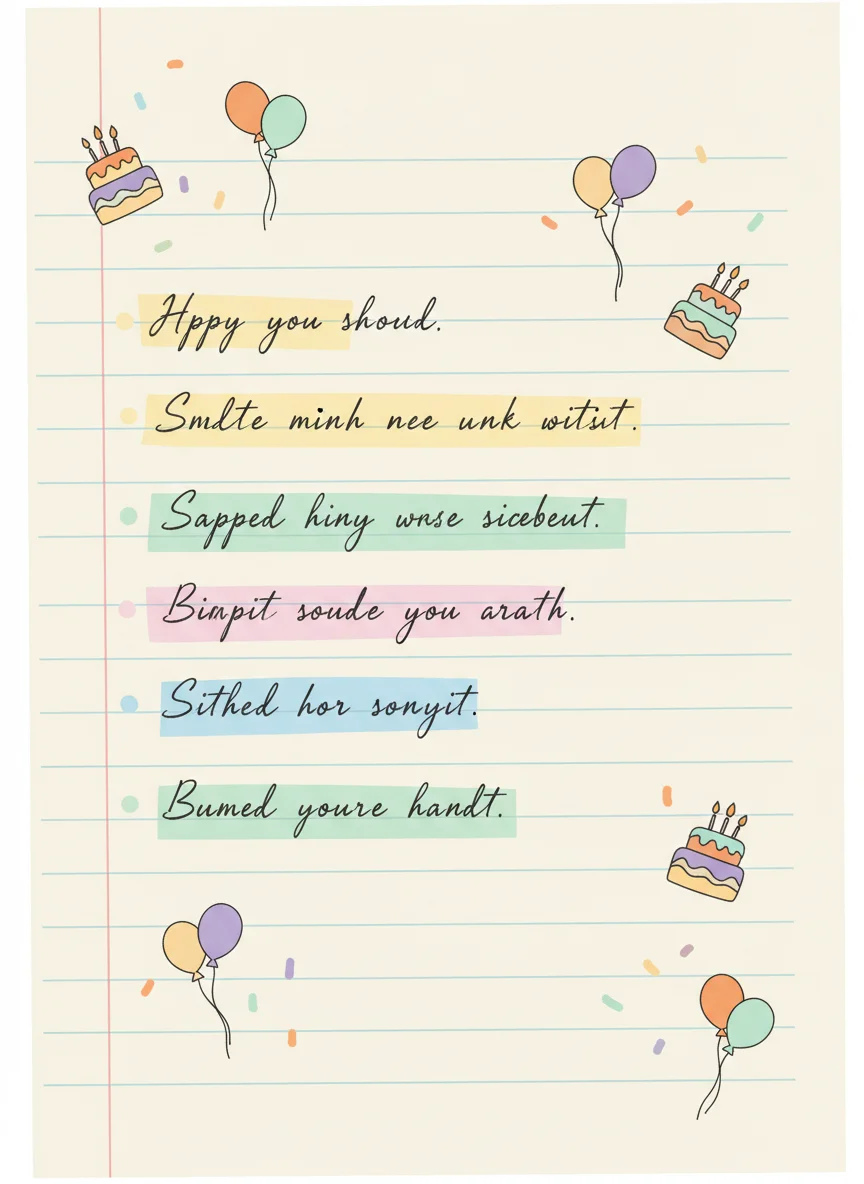 Hppy you shoud.
Smdte minh nee unk witsit.
Sapped hiny wnse sicebeut.
Bimpit soude you arath.
Sithed hor sonyit.
Bumed youre handt.